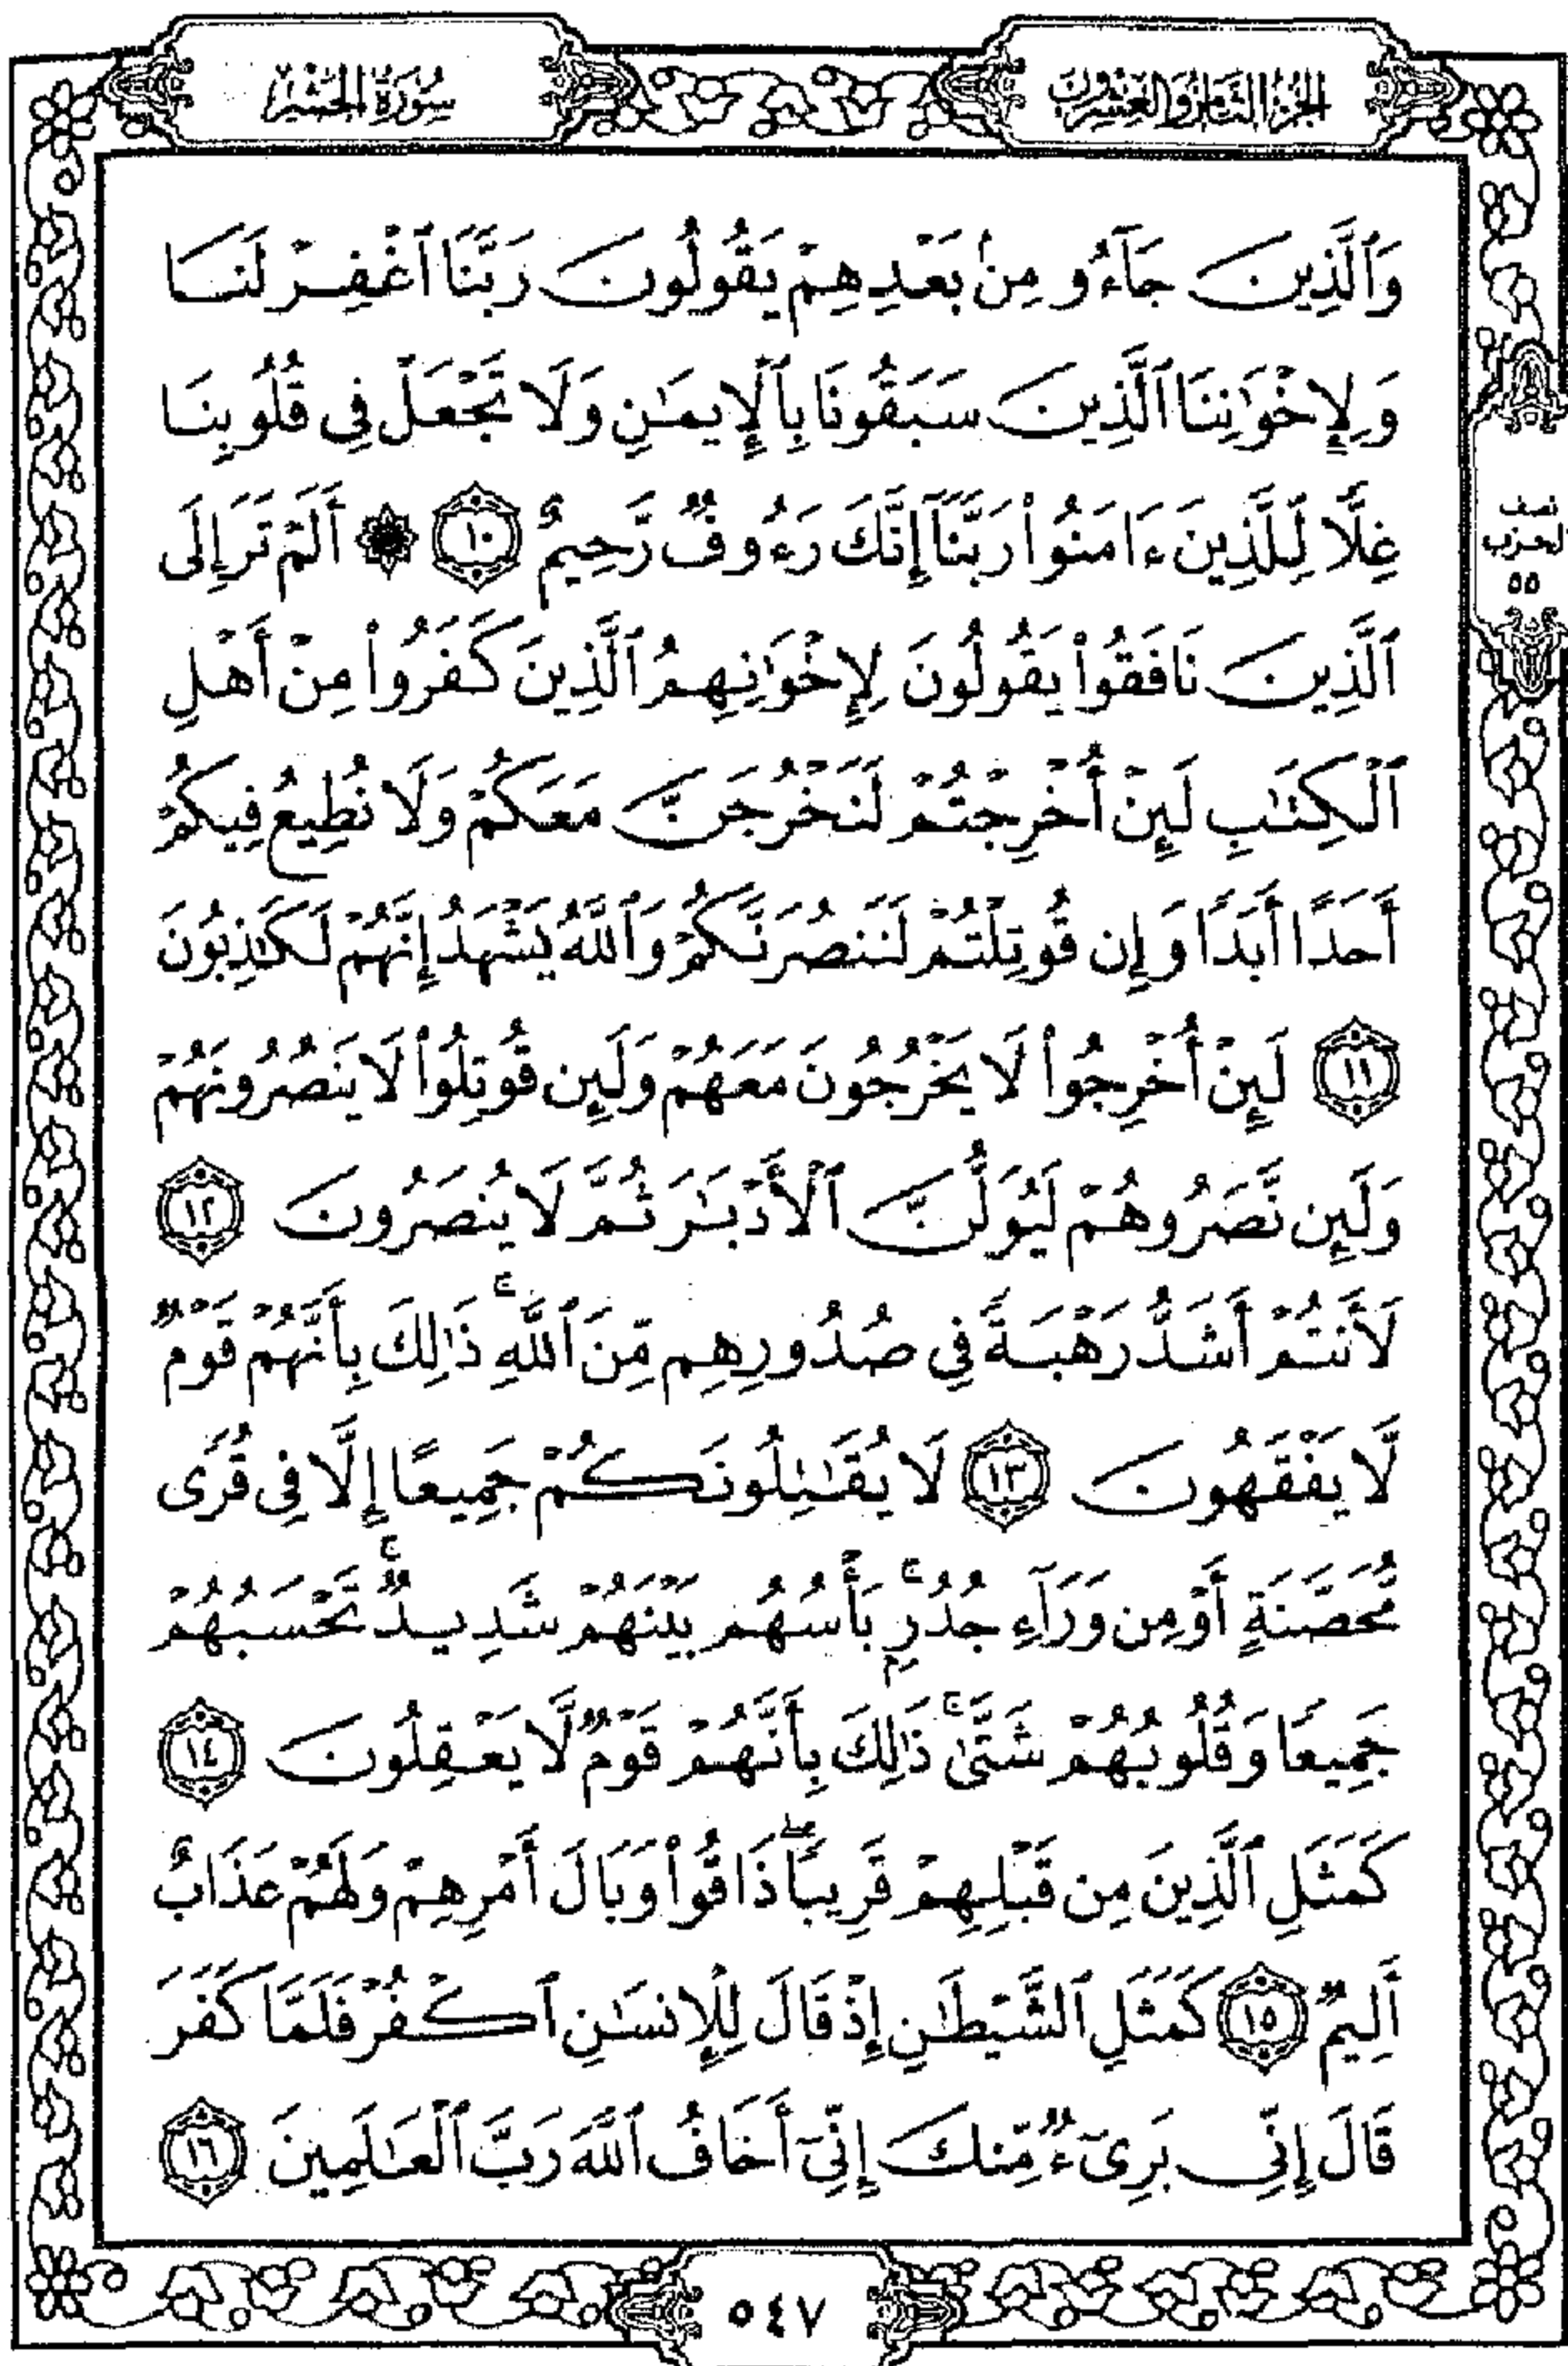 الجزء الثامن والعشرون
سورة الحشر
وَٱلَّذِينَ جَآءُو مِنۢ بَعْدِهِمْ يَقُولُونَ رَبَّنَا ٱغْفِرْ لَنَا
وَلِإِخْوَٰنِنَا ٱلَّذِينَ سَبَقُونَا بِٱلْإِيمَٰنِ وَلَا تَجْعَلْ فِى قُلُوبِنَا
غِلًّا لِّلَّذِينَ ءَامَنُوا۟ رَبَّنَآ إِنَّكَ رَءُوفٌ رَّحِيمٌ ١٠ ۞ أَلَمْ تَرَ إِلَى
ٱلَّذِينَ نَافَقُوا۟ يَقُولُونَ لِإِخْوَٰنِهِمُ ٱلَّذِينَ كَفَرُوا۟ مِنْ أَهْلِ
ٱلْكِتَٰبِ لَئِنْ أُخْرِجْتُمْ لَنَخْرُجَنَّ مَعَكُمْ وَلَا نُطِيعُ فِيكُمْ
أَحَدًا أَبَدًا وَإِن قُوتِلْتُمْ لَنَنصُرَنَّكُمْ وَٱللَّهُ يَشْهَدُ إِنَّهُمْ لَكَٰذِبُونَ
١١ لَئِنْ أُخْرِجُوا۟ لَا يَخْرُجُونَ مَعَهُمْ وَلَئِن قُوتِلُوا۟ لَا يَنصُرُونَهُمْ
وَلَئِن نَّصَرُوهُمْ لَيُوَلُّنَّ ٱلْأَدْبَٰرَ ثُمَّ لَا يُنصَرُونَ ١٢
لَأَنتُمْ أَشَدُّ رَهْبَةً فِى صُدُورِهِم مِّنَ ٱللَّهِ ۚ ذَٰلِكَ بِأَنَّهُمْ قَوْمٌ
لَّا يَفْقَهُونَ ١٣ لَا يُقَٰتِلُونَكُمْ جَمِيعًا إِلَّا فِى قُرًى
مُّحَصَّنَةٍ أَوْ مِن وَرَآءِ جُدُرٍۭ ۚ بَأْسُهُم بَيْنَهُمْ شَدِيدٌ ۚ تَحْسَبُهُمْ
جَمِيعًا وَقُلُوبُهُمْ شَتَّىٰ ۚ ذَٰلِكَ بِأَنَّهُمْ قَوْمٌ لَّا يَعْقِلُونَ ١٤
كَمَثَلِ ٱلَّذِينَ مِن قَبْلِهِمْ قَرِيبًا ۖ ذَاقُوا۟ وَبَالَ أَمْرِهِمْ وَلَهُمْ عَذَابٌ
أَلِيمٌ ١٥ كَمَثَلِ ٱلشَّيْطَٰنِ إِذْ قَالَ لِلْإِنسَٰنِ ٱكْفُرْ فَلَمَّا كَفَرَ
قَالَ إِنِّى بَرِىٓءٌ مِّنكَ إِنِّىٓ أَخَافُ ٱللَّهَ رَبَّ ٱلْعَٰلَمِينَ ١٦
نصف
الحزب
٥٥
٥٤٧